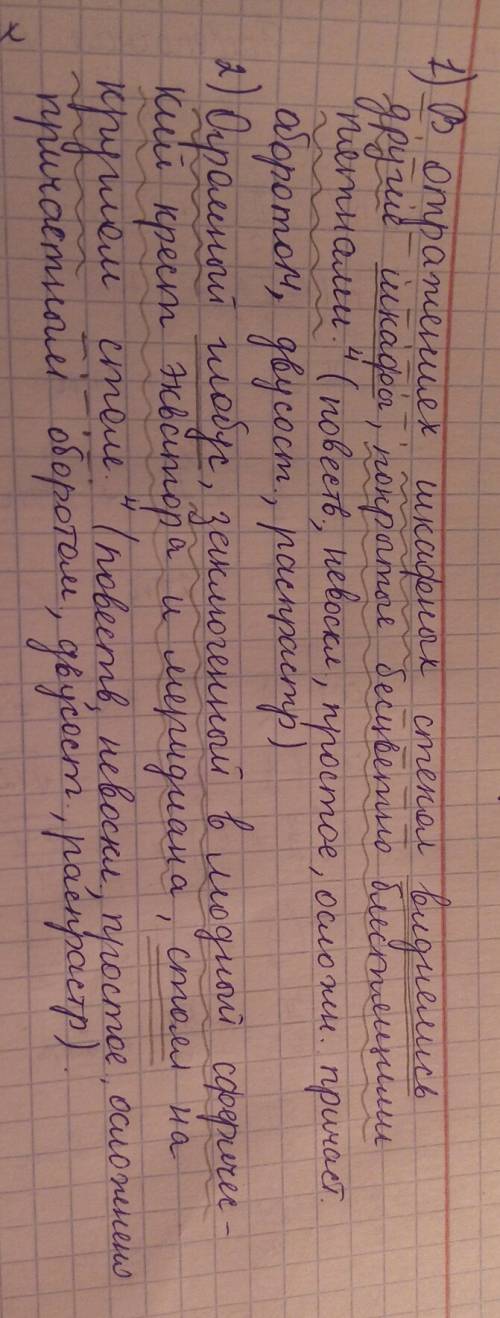 1) В отражениях шкафных стекол виднелись
другие шкафы, покрытые бесцветно блестящими
пятнами.⁴ (повеств, невоскл, простое, осложн. причаст.
оборотом, двусост., распрастр)
2) Огромный глобус, заключенный в модный сферичес-
кий крест экватора и меридиана, стоял на
круглом столе.⁴ (повеств, невоскл, простое, осложнено
причастным оборотом, двусост., распрастр).